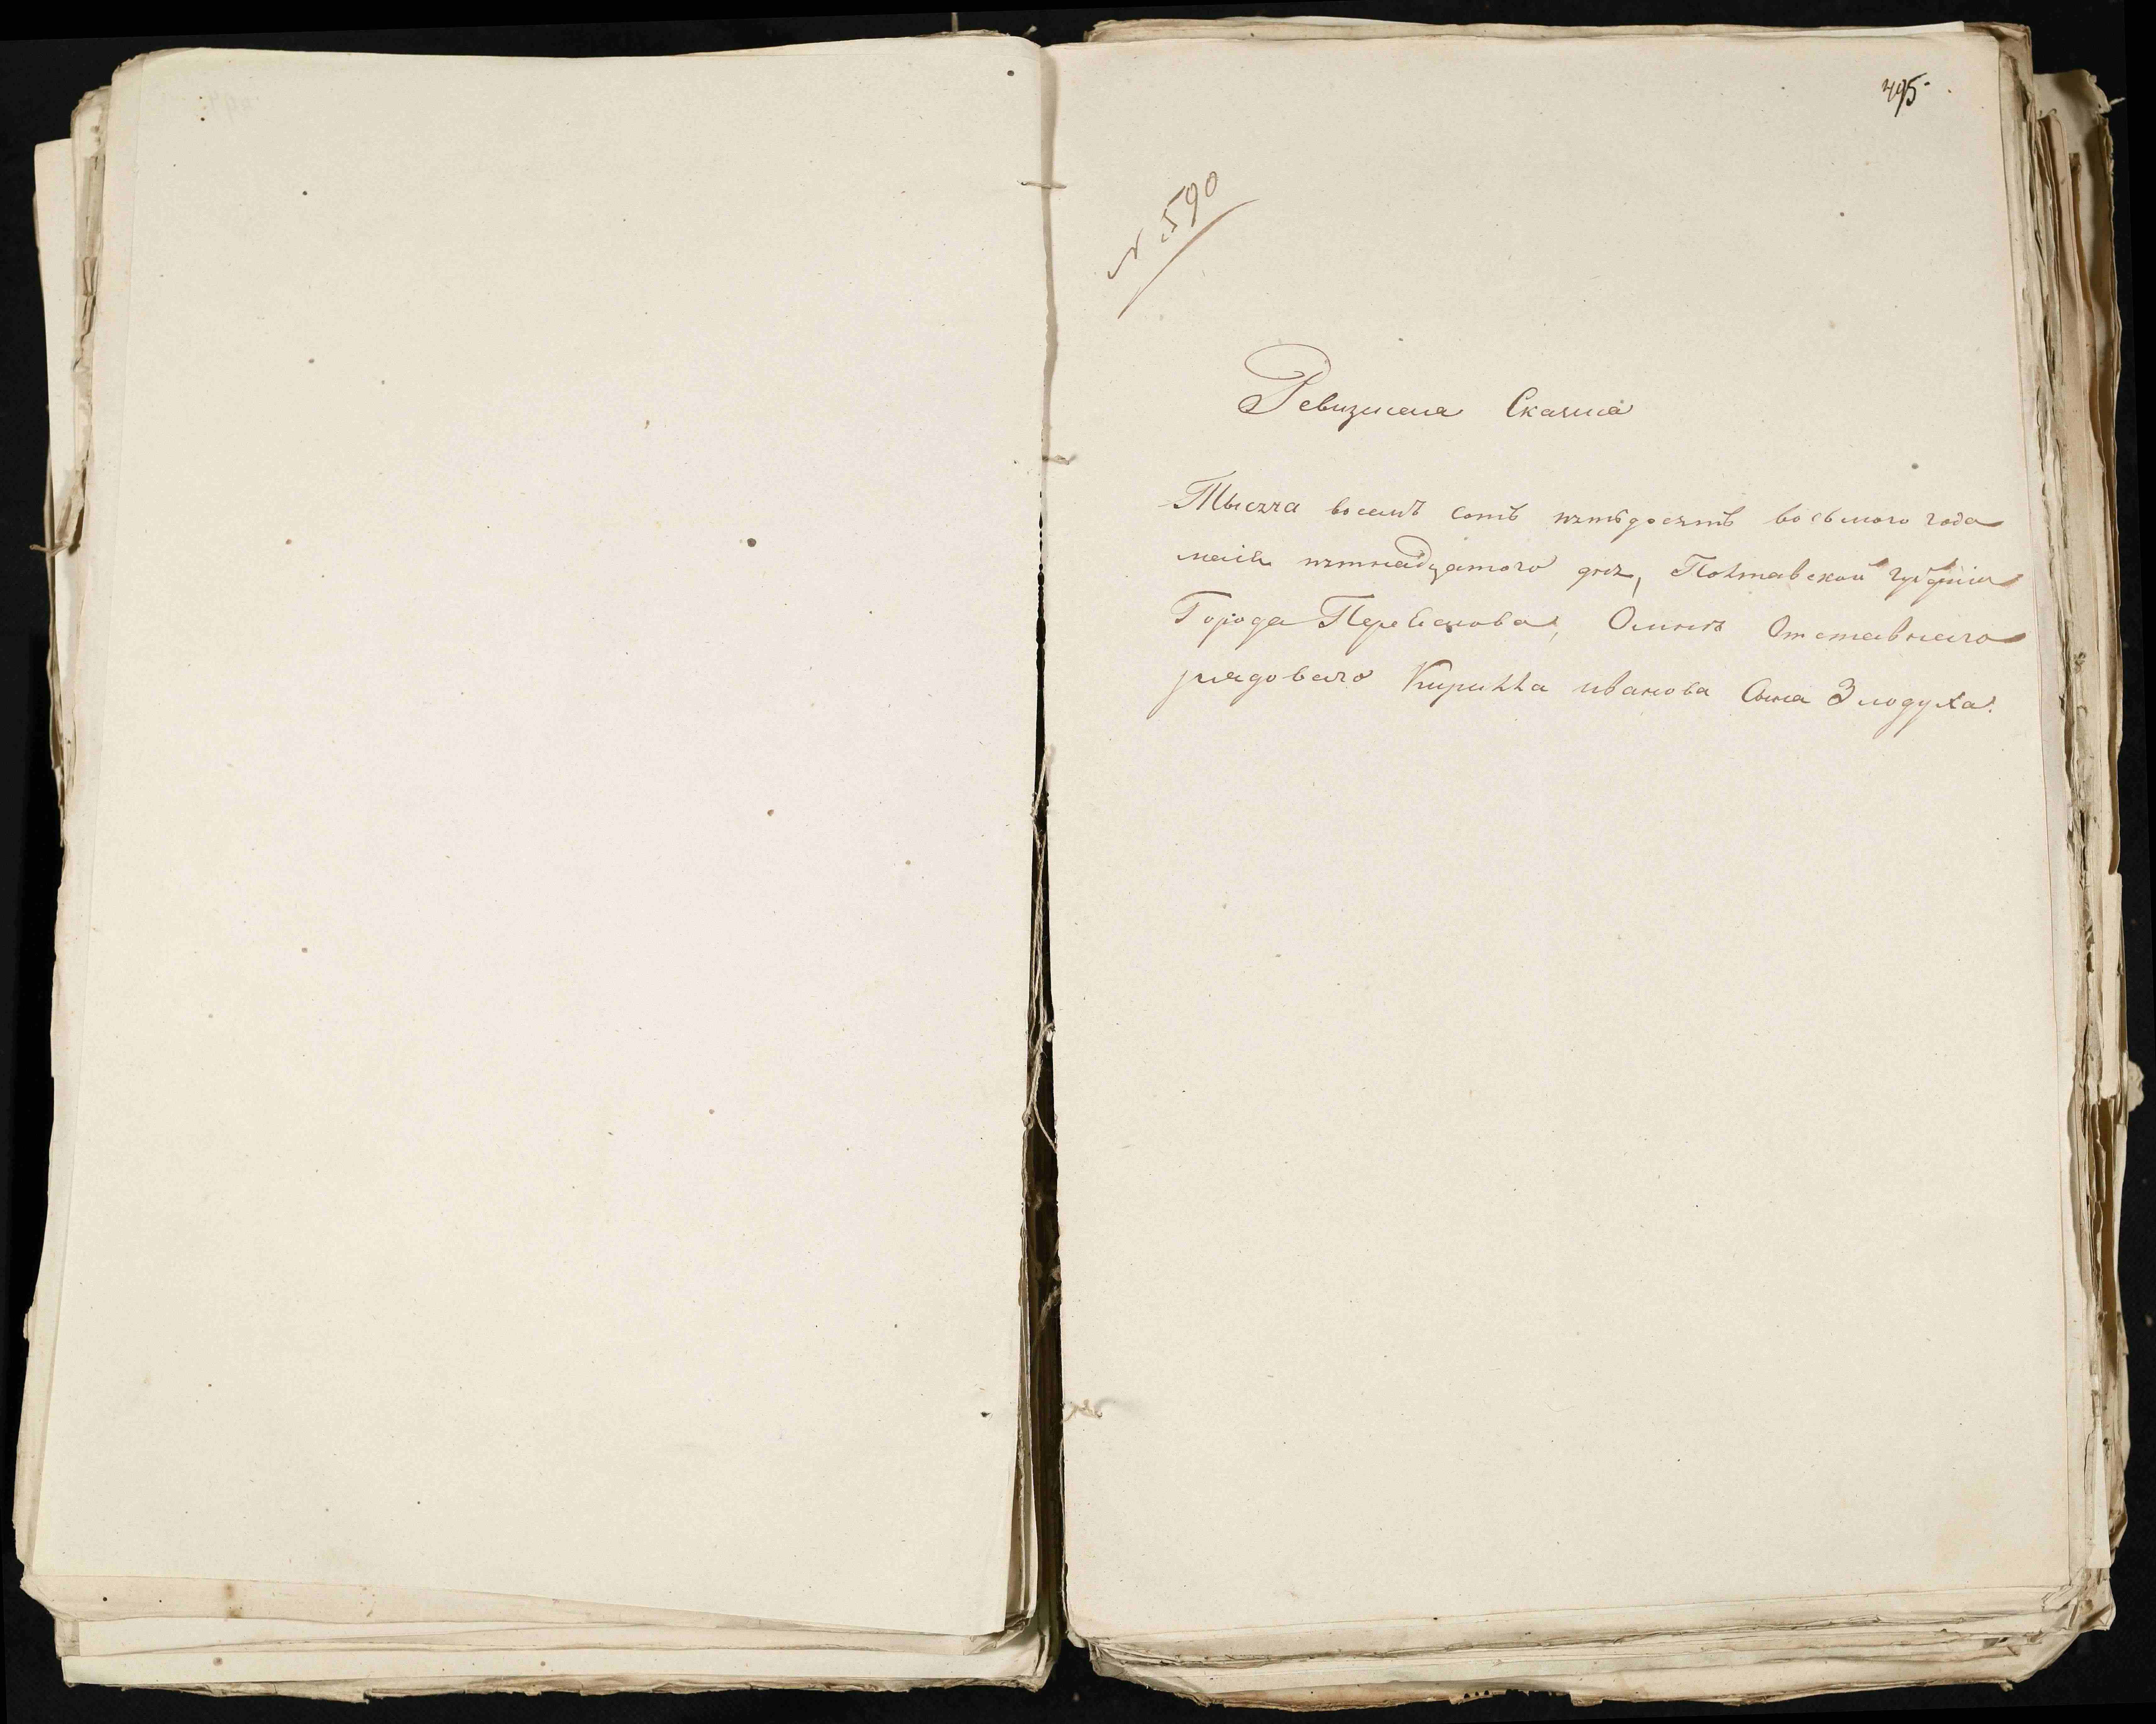 495
№ 590
Ревизская Сказка
Тысяча восемъ сотъ пятьдесятъ восьмого года
маія пятнадцатого дня, Полтавской губерніи
Города Переяслова,  Отставнаго
рядоваго Кирилла иванова Сына Злодуха.